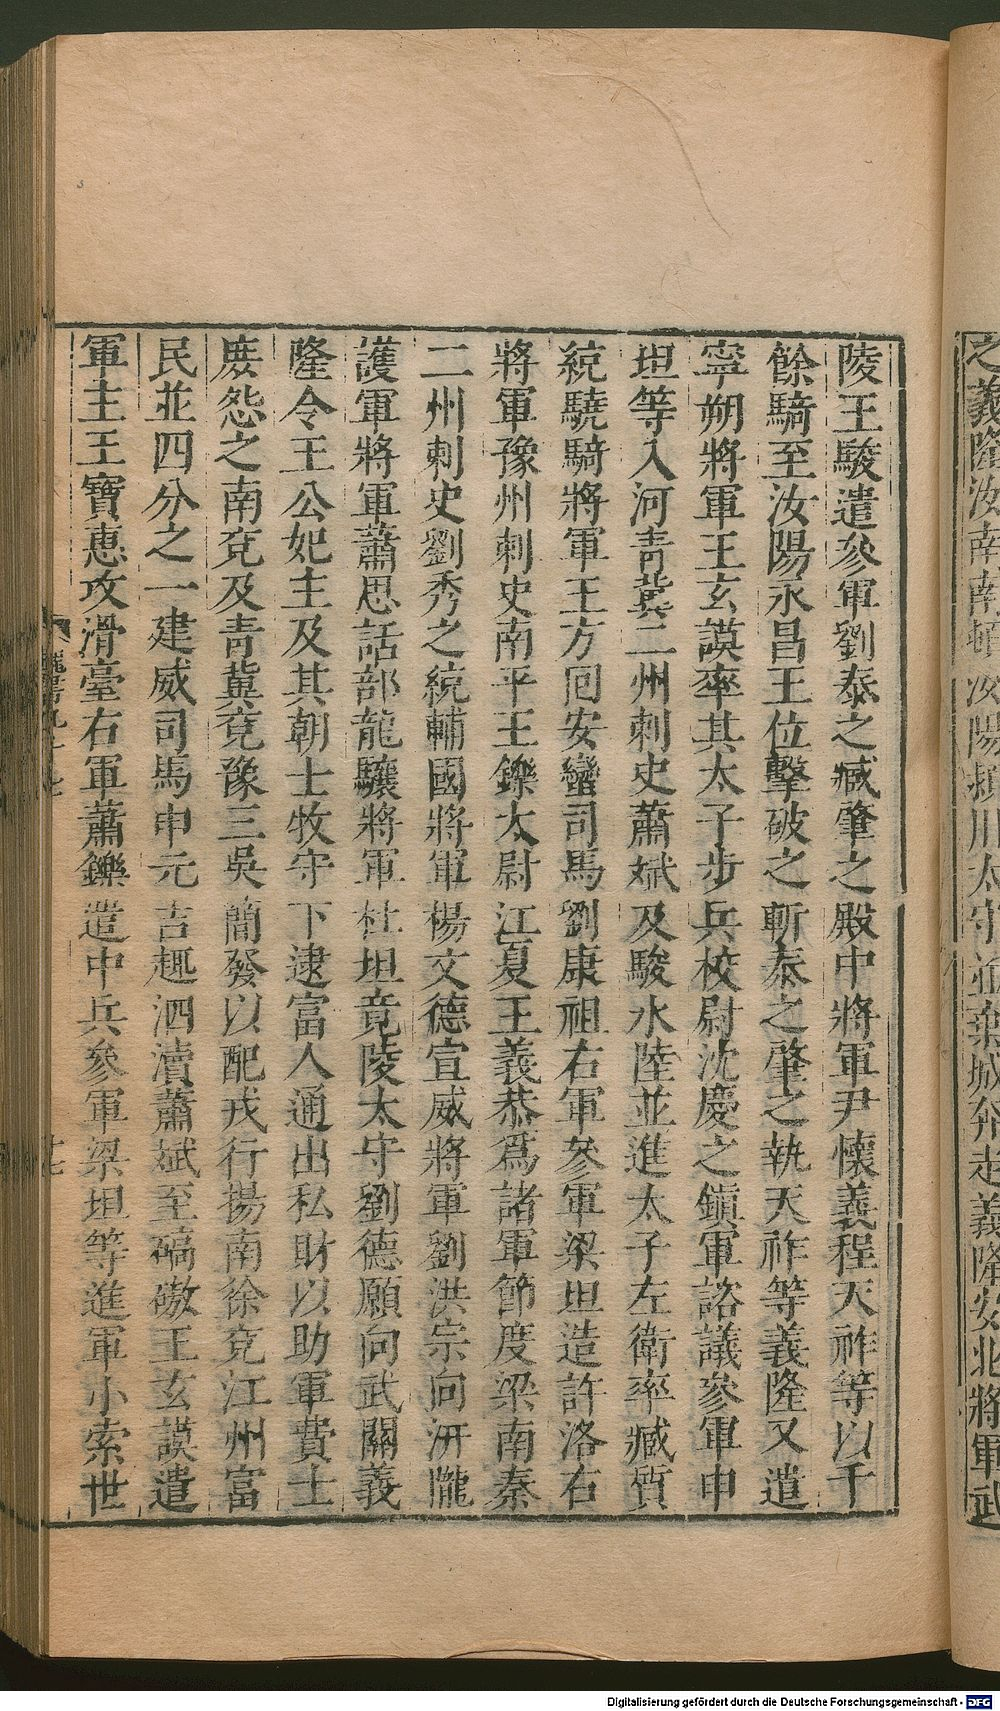 之義隆汝南南頓汝陽潁川太守並棄城奔走義隆安北將軍武
陵王駿遣參軍劉泰之臧肇之殿中將軍尹懷義程天祚等以千
餘騎至汝陽永昌王位擊破之斬泰之肇之執天祚等義隆又遣
寧朔將軍王玄謨率其太子步兵校尉沈慶之鎮軍諮議參軍申
坦等入河青冀二州刺史蕭斌及駿水陸並進太子左衛率臧質
統驍騎將軍王方囘安蠻司馬劉康祖右軍參軍梁坦造許洛右
將軍豫州刺史南平王鑠太尉江夏王義恭爲諸軍節度梁南秦
二州刺史劉秀之統輔國將軍楊文德宣威將軍劉洪宗向汧隴
護軍將軍蕭思話部龍驤將軍杜坦竟陵太守劉德願向武關義
隆令王公妃主及其朝士牧守下逮富人通出私財以助軍費士
庶怨之南兗及青冀兗豫三吳簡發以配戎行揚南徐兗江州富
民並四分之一建威司馬申元吉趣泗瀆蕭斌至碻磝王玄謨遣
軍主王寶惠攻滑臺右軍蕭鑠遣中兵參軍梁坦等進軍小索世
Digitalisierung gefördert durch die Deutsche Forschungsgemeinschaft - DFG